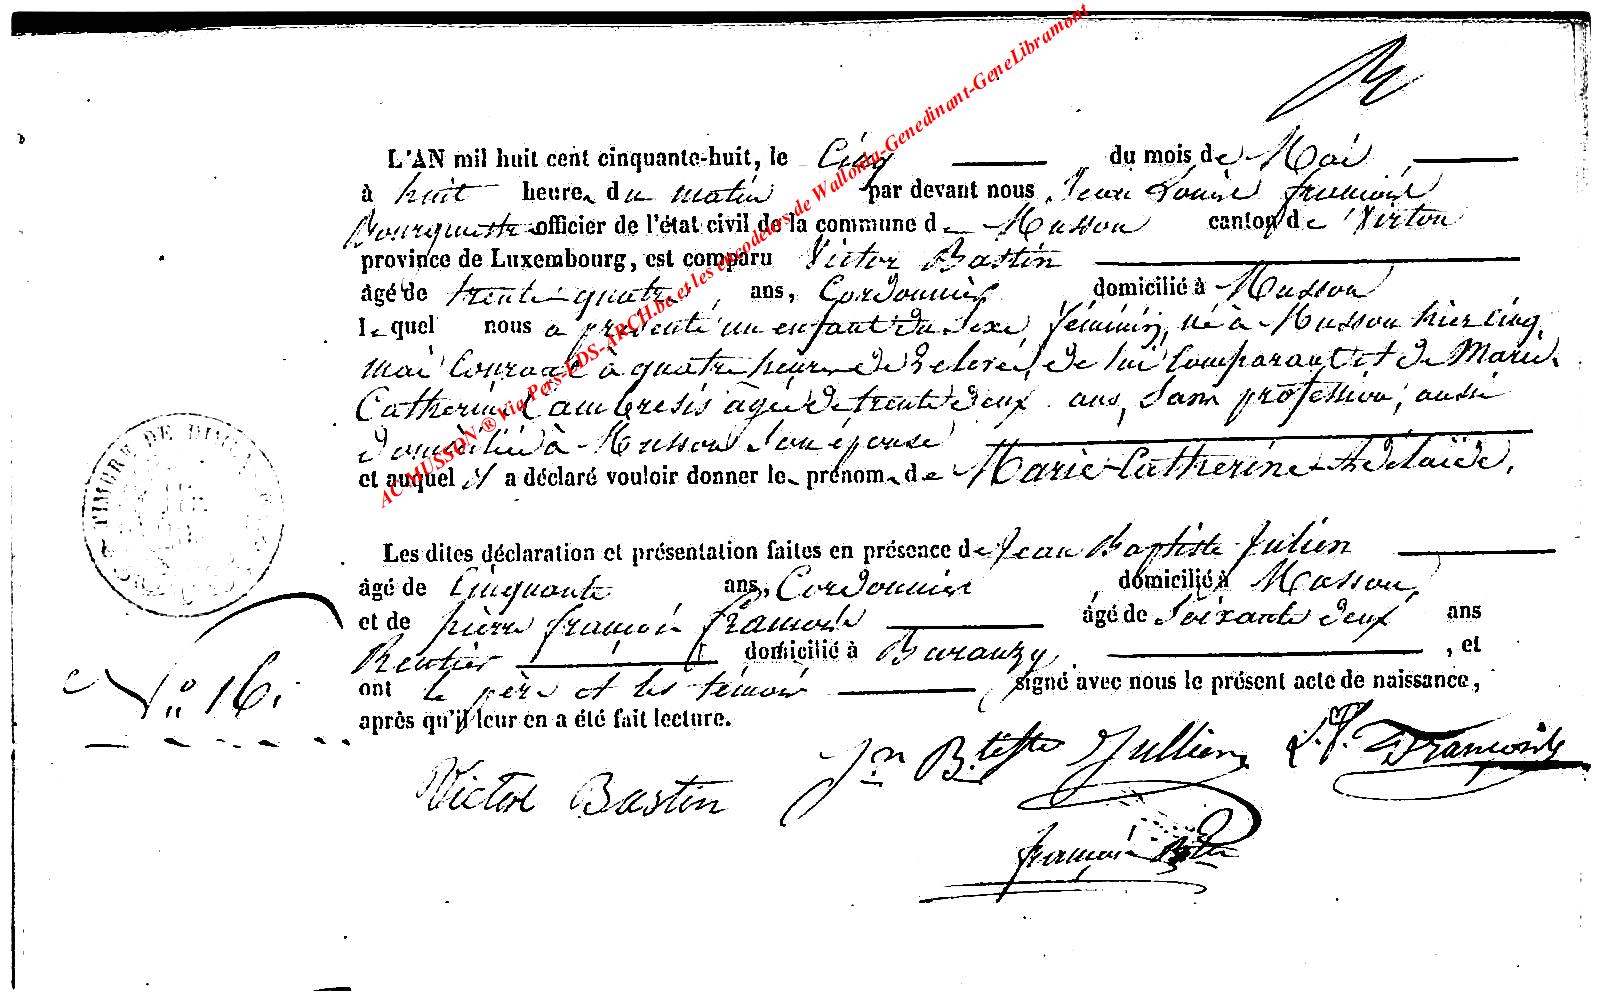 L'AN mil huit cent cinquante-huit, le Cinq du mois de Mai
à huit heures du matin par devant nous Jean Louis François
Bourguette officier de l'état civil de la commune de Musson canton de Virton
province de Luxembourg, est comparu Victor Bastin
âgé de trente quatre ans, Cordonnier domicilié à Musson
lequel nous a présenté un enfant du sexe féminin, né à Musson hier cinq
mai Courant à quatre heures de relevé, de lui Comparant et de Marie
Catherine Cambresis âgée de trente deux ans, Sans profession, aussi
domiciliée à Musson Son épouse
et auquel il a déclaré vouloir donner les prénoms de Marie-Catherine-Adelaïde.
Les dites déclaration et présentation faites en présence de Jean Baptiste Julien
âgé de Cinquante ans, Cordonnier domicilié à Musson,
et de pierre françois françois âgé de Soixante deux ans
Rentier domicilié à Baranzy, et
ont le père et les témoins signé avec nous le présent acte de naissance,
après qu'il leur en a été fait lecture.
N° 16.
Victor Bastin
Jn Btiste Jullien
P. F. François
TIMBRE DE DIMENSION
AC MUSSON ® Via Pers-EDS-ARCH.be et les encodeurs de Wallonia-Genedinant-GeneLibramont